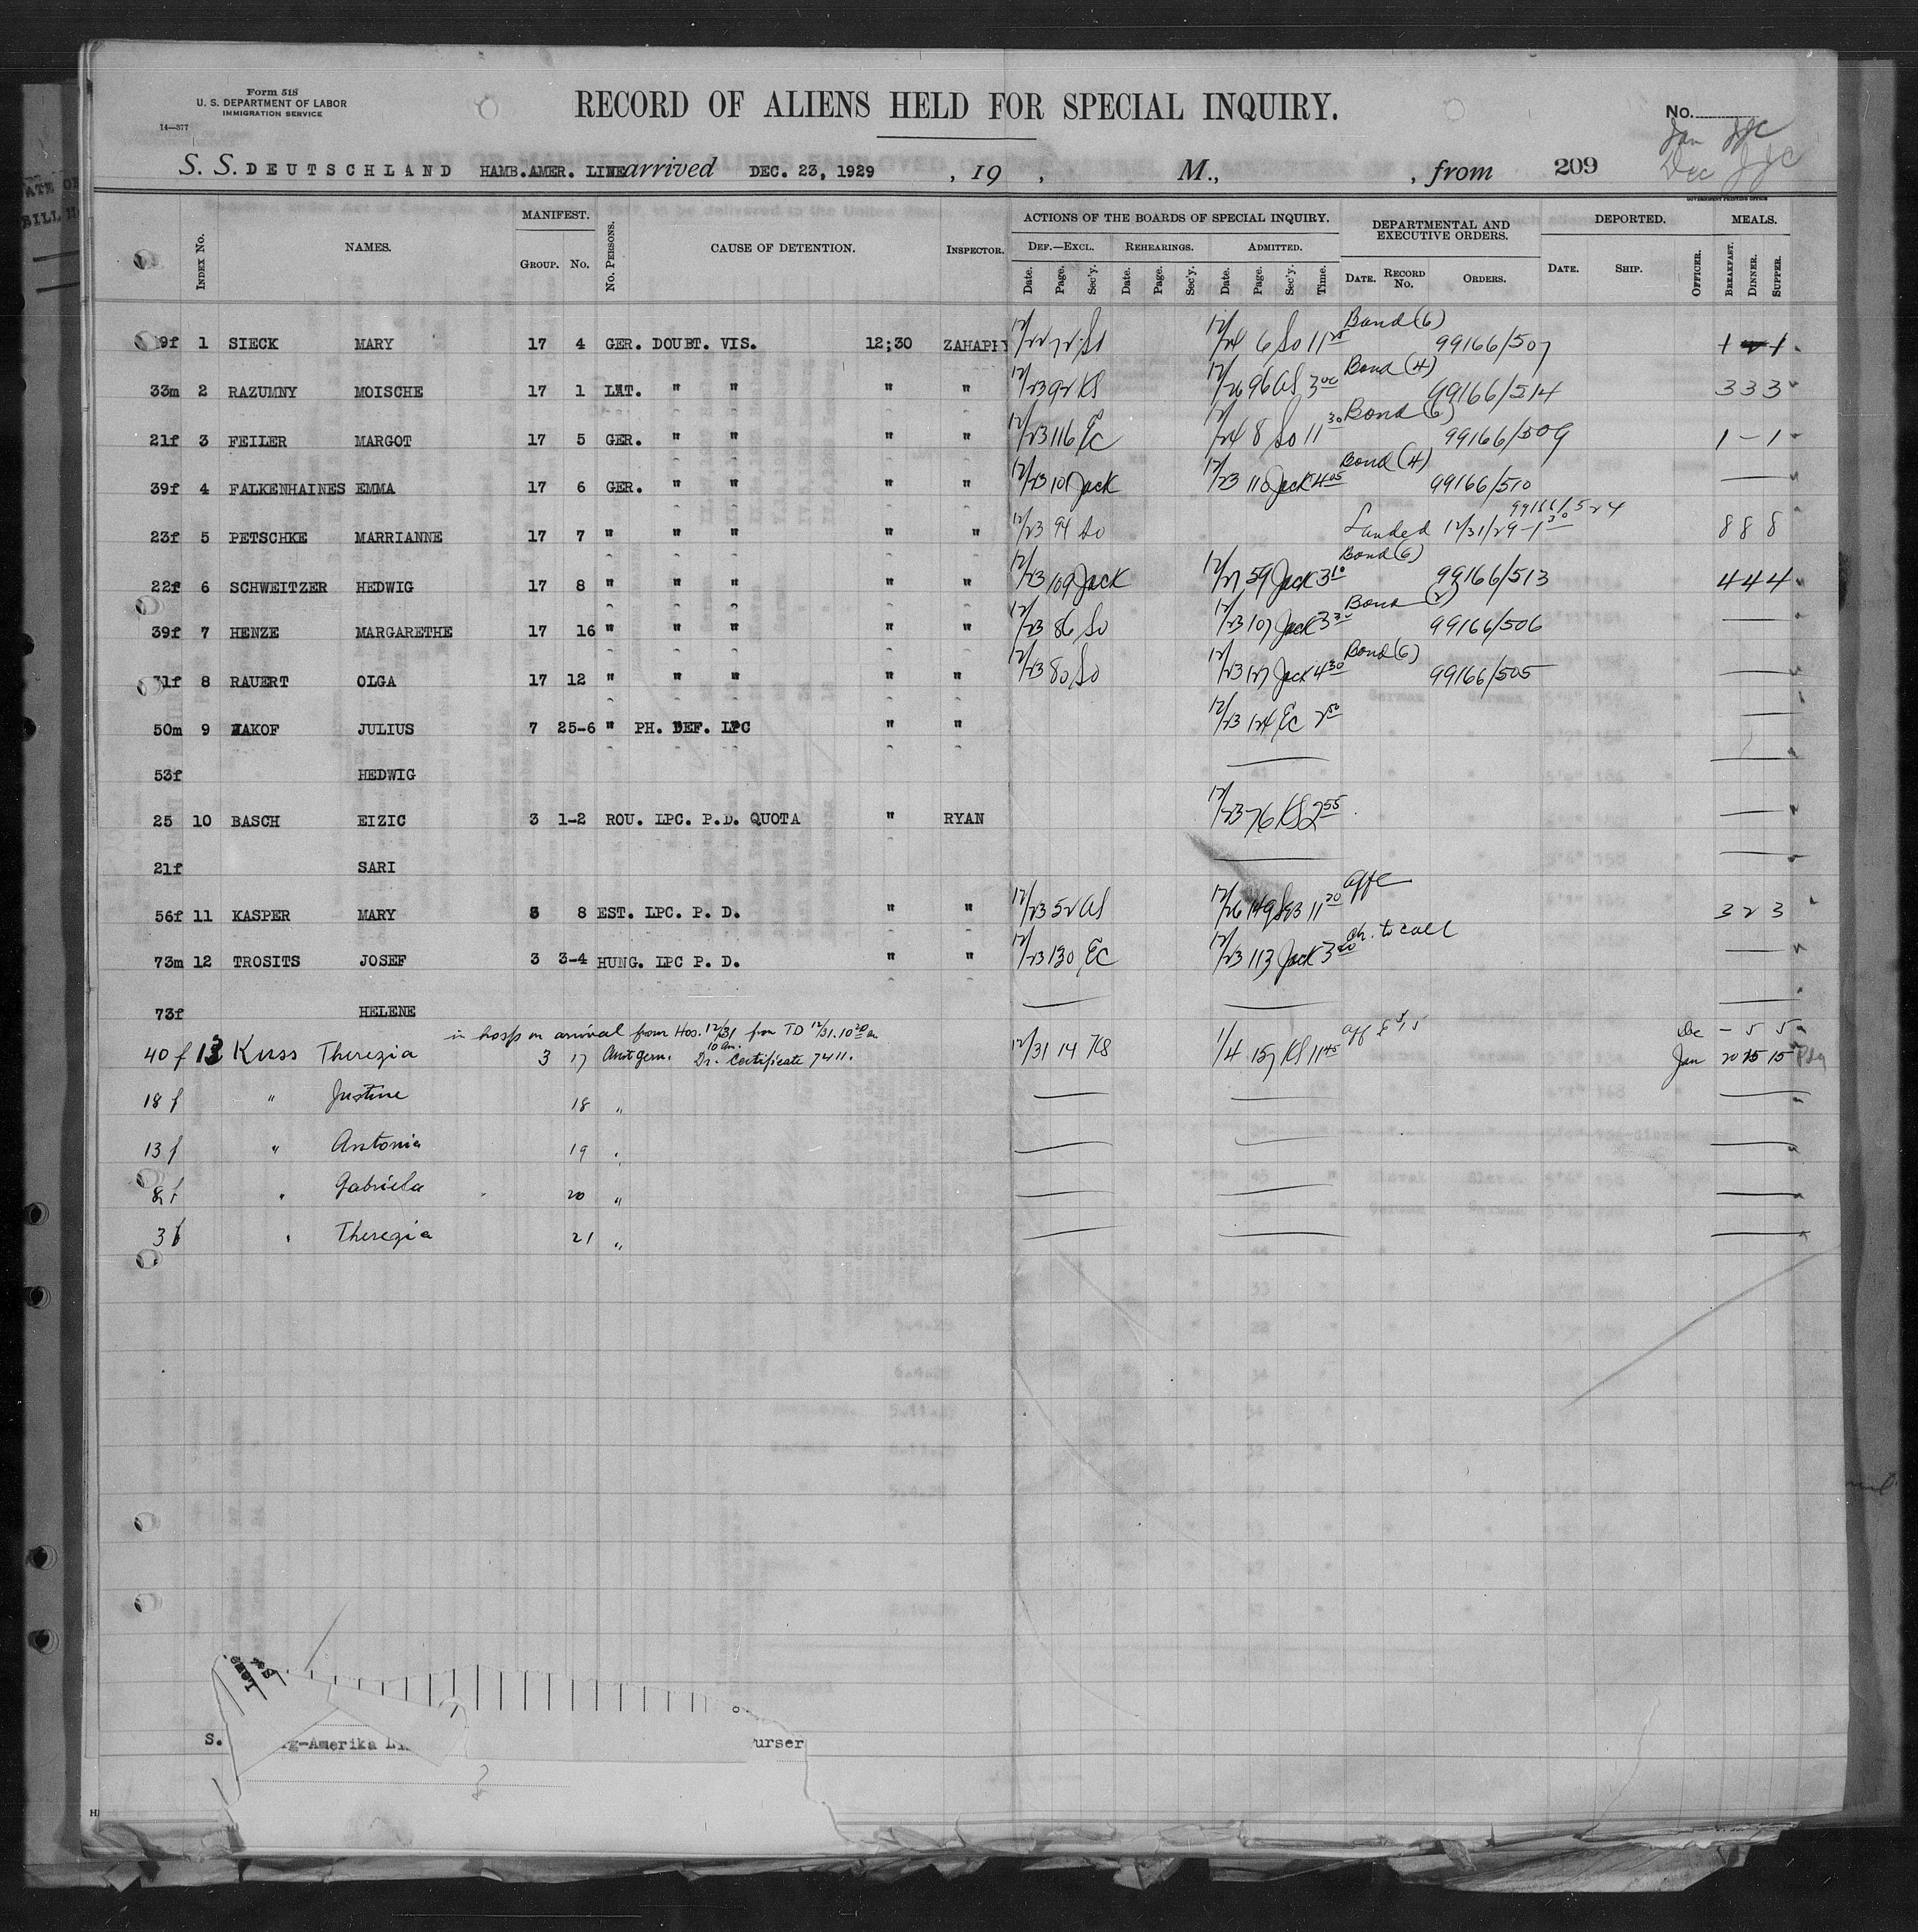 Form 518
U. S. DEPARTMENT OF LABOR
IMMIGRATION SERVICE
14—377
RECORD OF ALIENS HELD FOR SPECIAL INQUIRY.
No.
Jan JJC
Dec JJC
S. S. DEUTSCHLAND HAMB.AMER. LINE arrived DEC. 23, 1929 , 19 , M., , from 209
GOVERNMENT PRINTING OFFICE
INDEX No. NAMES. MANIFEST. GROUP. No. No. PERSONS. CAUSE OF DETENTION. INSPECTOR. ACTIONS OF THE BOARDS OF SPECIAL INQUIRY. DEF.—EXCL. REHEARINGS. ADMITTED. DEPARTMENTAL AND EXECUTIVE ORDERS. DEPORTED. MEALS.
Date. Page. Sec'y. Date. Page. Sec'y. Date. Page. Sec'y. Time. DATE. RECORD No. ORDERS. DATE. SHIP. OFFICER. BREAKFAST. DINNER. SUPPER.
9f 1 SIECK MARY 17 4 GER. DOUBT. VIS. 12;30 ZAHAPHY 12/24 6 So 11 25 Bond (6) 99166/507 1 1
33m 2 RAZUMNY MOISCHE 17 1 LAT. " " " " 12/23 92 KS 12/26 96 AS 3 00 Bond (4) 99166/514 3 3 3
21f 3 FEILER MARGOT 17 5 GER. " " " " 12/23 116 EC 12/24 8 So 11 30 Bond (6) 99166/509 1 – 1
39f 4 FALKENHAINES EMMA 17 6 GER. " " " " 12/23 101 Jack 12/23 110 Jack 4 05 Bond (4) 99166/510
23f 5 PETSCHKE MARRIANNE 17 7 " " " " " 12/23 94 So 99166/524 Landed 12/31/29 – 1 30 8 8 8
22f 6 SCHWEITZER HEDWIG 17 8 " " " " " 12/23 109 Jack 12/27 59 Jack 3 10 Bond (6) 99166/513 4 4 4
39f 7 HENZE MARGARETHE 17 16 " " " " " 12/23 86 So 12/23 107 Jack 3 30 Bond (2) 99166/506
31f 8 RAUERT OLGA 17 12 " " " " " 12/23 80 So 12/23 127 Jack 4 30 Bond (6) 99166/505
50m 9 MAKOF JULIUS 7 25-6 " PH. DEF. LPC " " 12/23 124 EC 2 50
53f HEDWIG
25 10 BASCH EIZIC 3 1-2 ROU. LPC. P.D. QUOTA " RYAN 12/23 76 KS 2 55
21f SARI
56f 11 KASPER MARY 5 8 EST. LPC. P. D. " " 12/23 52 AS 12/26 149 11 20 affe 3 2 3
73m 12 TROSITS JOSEF 3 3-4 HUNG. LPC P. D. " " 12/23 130 EC 12/23 113 Jack 3 20 ch. to call
73f HELENE
in hosp on arrival from Hos. 12/31 from TD 12/31. 10 20 am
40 f 13 Kuss Therezia 3 17 Aust germ. 10 am. Dr. Certificate 7411. 12/31 14 KS 1/4 157 KS 11 45 aff Dec – 5 5
Jan 20 15 15
18 f " Justine 18 "
13 f " Antonia 19 "
8 f " Gabriela 20 "
3 f " Therezia 21 "
S. rg-Amerika urser